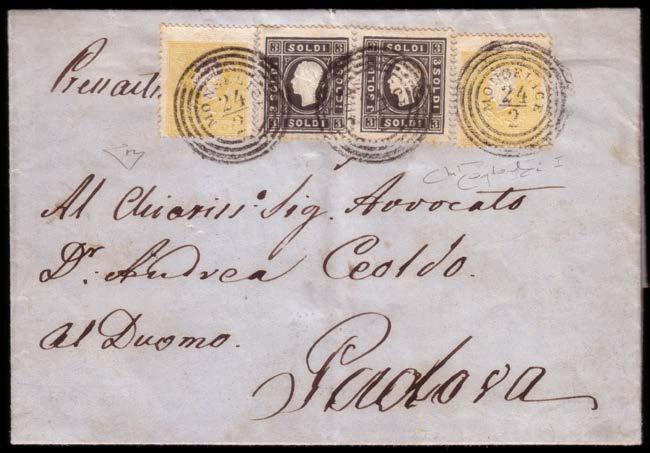 SOLDI SOLDI
3 3 3 3
SOLDI SOLDI SOLDI
SOLDI SOLDI
MONSELICE
24
2
MONSELICE
24
2
Al Chiariss.° Sig. Avvocato
Dr. Andrea Ceoldo.
al Duomo.
Padova